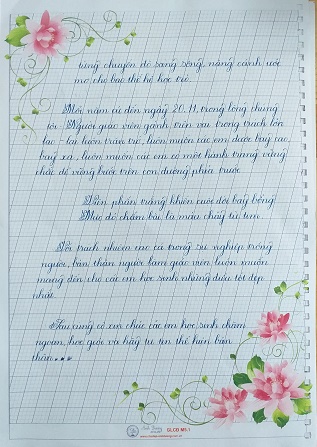 từng chuyến đò sang sông, nâng cánh ước
mơ cho bao thế hệ học trò.
Mỗi năm cứ đến ngày 20.11, trong lòng chúng
tôi - Người giáo viên gánh trên vai trọng trách lớn
lao - lại luôn trăn trở, luôn muốn các em được bay cao,
bay xa, luôn muốn các em có một hành trang vững
chắc để vững bước trên con đường phía trước
Viên phấn trắng khiến cuộc đời bay bổng
Mực đỏ chấm bài là máu chảy từ tim.
Với trách nhiệm cao cả trong sự nghiệp trồng
người, bản thân người làm giáo viên luôn muốn
mang đến cho các em học sinh những điều tốt đẹp
nhất.
Sau cùng cô xin chúc các em học sinh chăm
ngoan, học giỏi và hãy tự tin thể hiện bản
thân...
GLCB M5.1